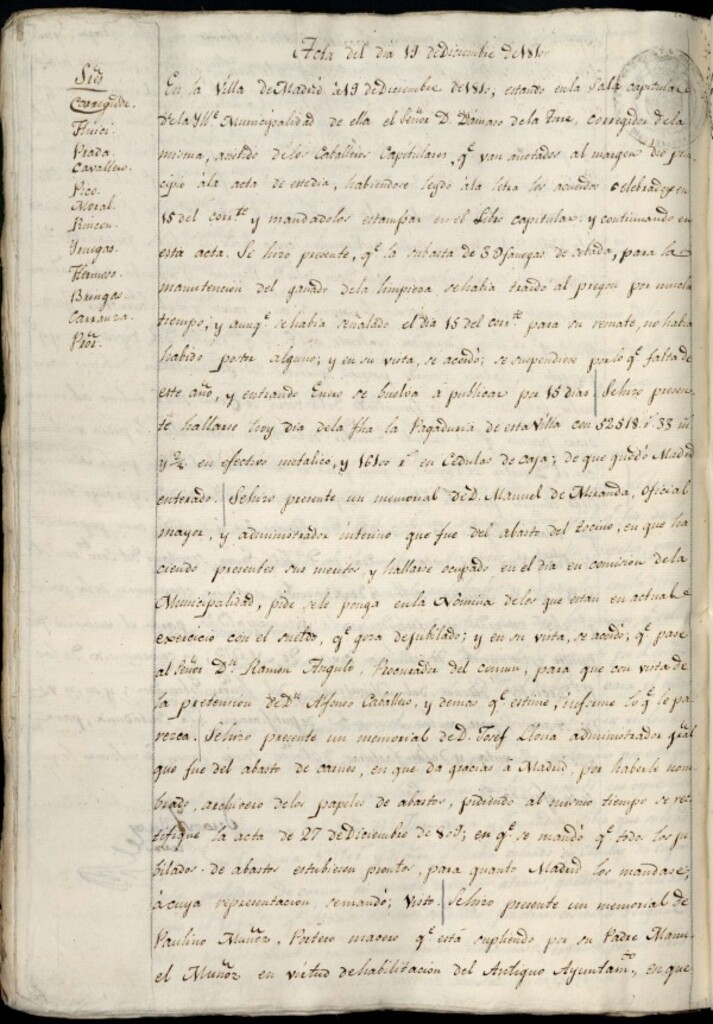 Acta del dia 19 de Diciembre de 1810
S.res
Corregidor.
Prada.
Cavallero.
Pico.
Moral.
Rincon.
Venegas.
Hermoso.
Bringas.
Carranza.
Pror.
En la Villa de Madrid à 19 de Diciembre de 1810, estando en la Sala capitular
de la Ylle. Municipalidad de ella el Señor D. Dámaso de la Torre, corregidor de la
misma, asistido de los Caballeros Capitulares, qe. van anotados al margen dio prin
cipio àla acta de este dia, habiendose leydo àla letra los acuerdos celebrados en
15 del corrte. y mandadolos estampar en el Libro capitular: y continuando en
esta acta. Se hizo presente, qe. la subasta de 30 fanegas de cebada, para la
manutencion del ganado dela limpieza se habia traido al pregon por mucho
tiempo; y aunqe. se habia señalado el dia 15 del corrte. para su remate, no habia
habido postor alguno; y en su vista, se acordó; se suspendiese por lo qe. falta de
este año, y entrando Enero se buelva à publicar por 15 dias. Se hizo presen-
te hallarse hoy dia dela fha la Pagaduria de esta Villa con 52518. r.s 33 m.s
y 2/4 en efectivo metalico, y 16100 r.s en Cedulas de caja; de que quedó Madrid
enterado. Se hizo presente un memorial de D. Manuel de Miranda, oficial
mayor, y administrador interino que fue del abasto del tocino, en que ha
ciendo presentes sus meritos, y hallarse ocupado en el dia en comision dela
Municipalidad, pide sele ponga en la Nómina delos que estan en actual
exercicio con el sueldo, qe. goza de jubilado; y en su vista, se acordó; qe. pase
al Señor Dn. Ramon Angulo, Procurador del comun, para que con vista de
la pretension de Dn. Alfonso Caballero, y demas qe. estime, informe lo qe. le pa
rezca. Se hizo presente un memorial de D. Josef Llona administrador gral
que fue del abasto de carnes, en que da gracias à Madrid, por haberle nom
brado, archivero delos papeles de abastos, pidiendo al mismo tiempo se rec
tifique la acta de 27 de Diciembre de 809; en qe. se mandó qe. todos los ju
bilados de abastos estubiesen prontos, para quanto Madrid los mandase;
à cuya representacion se mandó; Visto. Se hizo presente un memorial de
Paulino Muñoz, Portero macero qe. está supliendo por su Padre Manu
el Muñoz en virtud de habilitacion del Antiguo Ayuntamto., en que